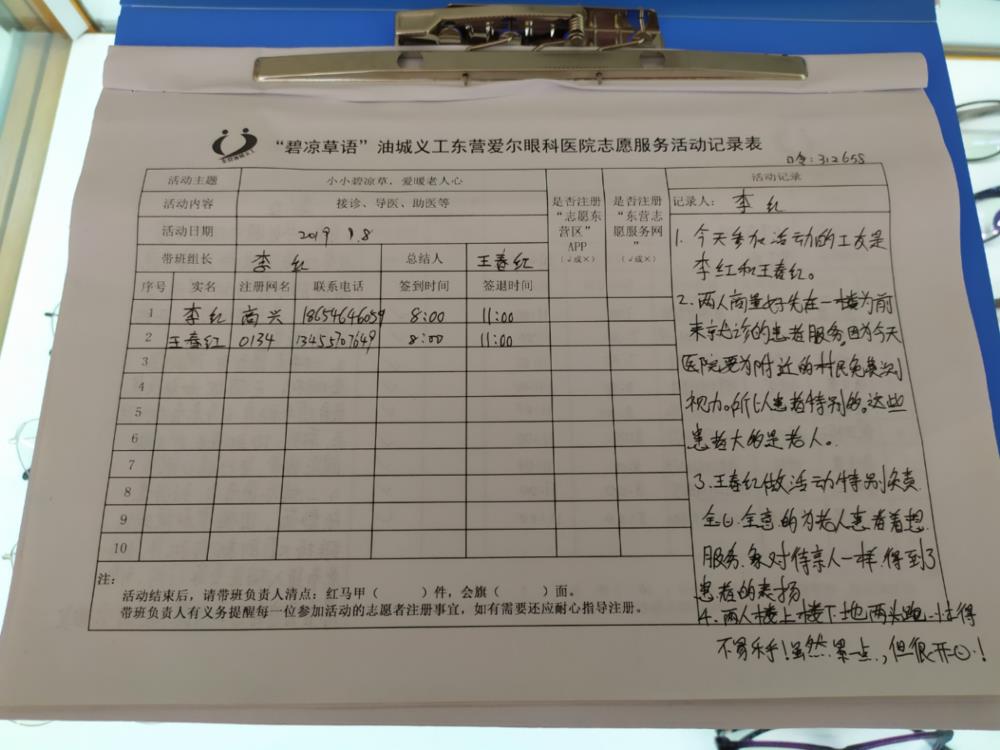 “碧凉草语”油城义工东营爱尔眼科医院志愿服务活动记录表
口令:312658
活动主题 小小碧凉草,爱暖老人心
活动内容 接诊、导医、助医等
活动日期 2019 1.8
带班组长 李红 总结人 王春红
是否注册“志愿东营区”APP(√或×)
是否注册“东营志愿服务网”(√或×)
序号 实名 注册网名 联系电话 签到时间 签退时间
1 李红 商兴 18654646059 8:00 11:00
2 王春红 0134 13455707649 8:00 11:00
3
4
5
6
7
8
9
10
注:
活动结束后,请带班负责人清点:红马甲( )件,会旗( )面。
带班负责人有义务提醒每一位参加活动的志愿者注册事宜,如有需要还应耐心指导注册。
活动记录
记录人: 李红
1. 今天参加活动的工友是
李红和王春红。
2. 两人商量好先在一楼为前
来就诊的患者服务,因为今天
医院要为附近的村民免费测
视力。所以患者特别的。这些
患者大的是老人。
3. 王春红做活动特别负责
全心全意的为老人患者着想
服务,象对待亲人一样,得到了
患者的表扬
4. 两人楼上楼下地两头跑,忙得
不易乐乎!虽然累一点,但很开心!